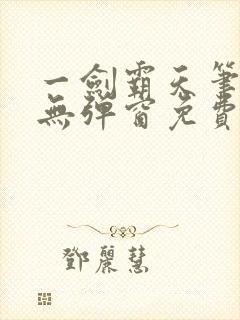 一劍霸天筆
無彈窗免費
鄧麗慧